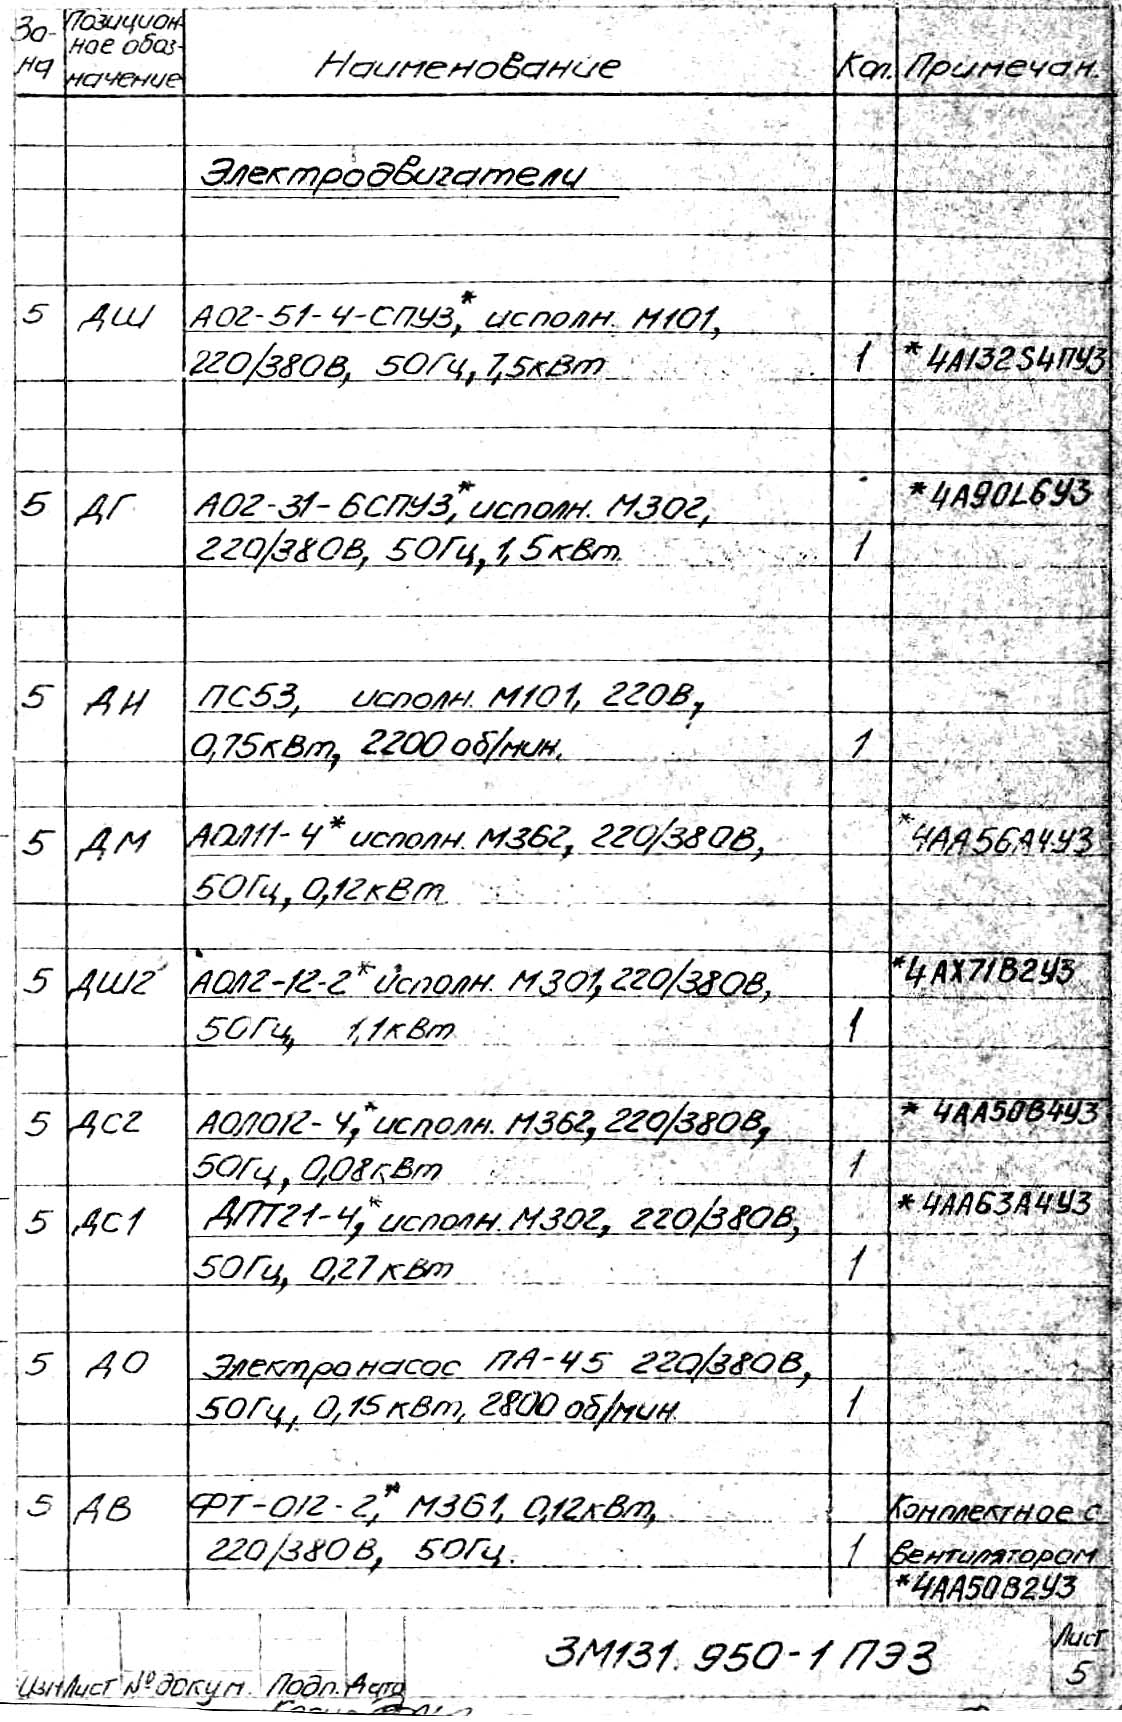 Зо- Позицион
ное обоз-
на начение Наименование Кол. Примечан.
Электродвигатели
5 ДШ АО2-51-4-СПУ3,* исполн. М101,
220/380В, 50Гц, 7,5кВт 1 *4А132S4ПУ3
5 ДГ АО2-31-6СПУ3,* исполн. М302, *4А90L6У3
220/380В, 50Гц, 1,5кВт 1
5 ДИ ПС53, исполн. М101, 220В,
0,75кВт, 2200 об/мин. 1
5 ДМ АОЛ11-4* исполн. М362, 220/380В, *4АА56А4У3
50Гц, 0,12кВт
5 ДШ2 АОЛ2-12-2* исполн. М301, 220/380В, *4АХ71В2У3
50Гц, 1,1кВт 1
5 ДС2 АОЛ012-4,* исполн. М362, 220/380В, *4АА50В4У3
50Гц, 0,08кВт 1
5 ДС1 ДПТ21-4,* исполн. М302, 220/380В, *4АА63А4У3
50Гц, 0,27кВт 1
5 ДО Электронасос ПА-45 220/380В,
50Гц, 0,15кВт, 2800 об/мин 1
5 ДВ ФТ-012-2,* М361, 0,12кВт, Комплектное с
220/380В, 50Гц. 1 вентилятором
*4АА50В2У3
3М131.950-1 ПЭ3 Лист
Изм Лист № докум. Подп. Дата 5